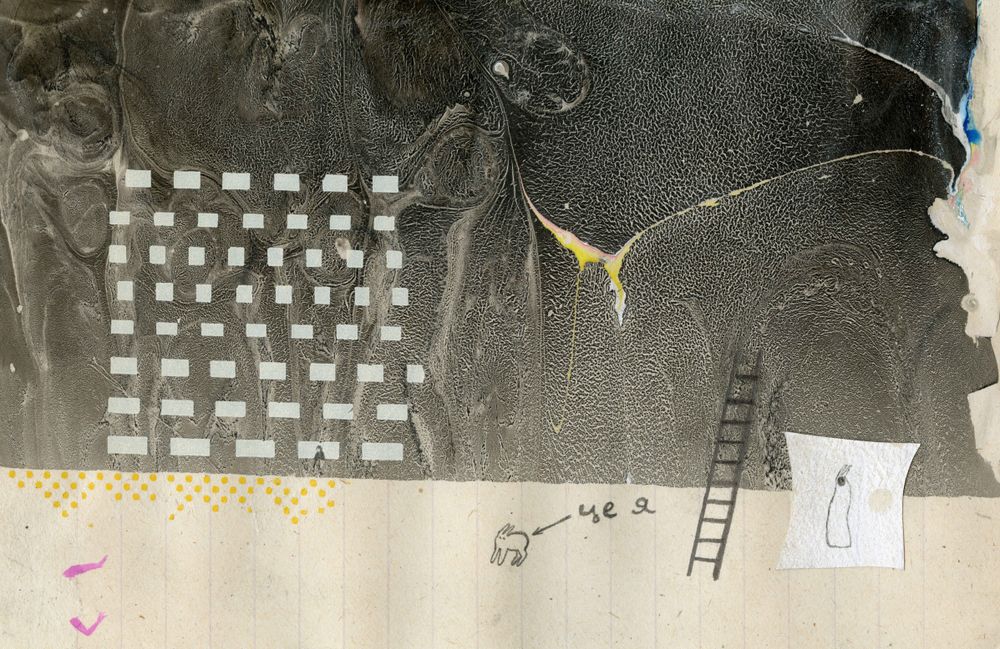 це я